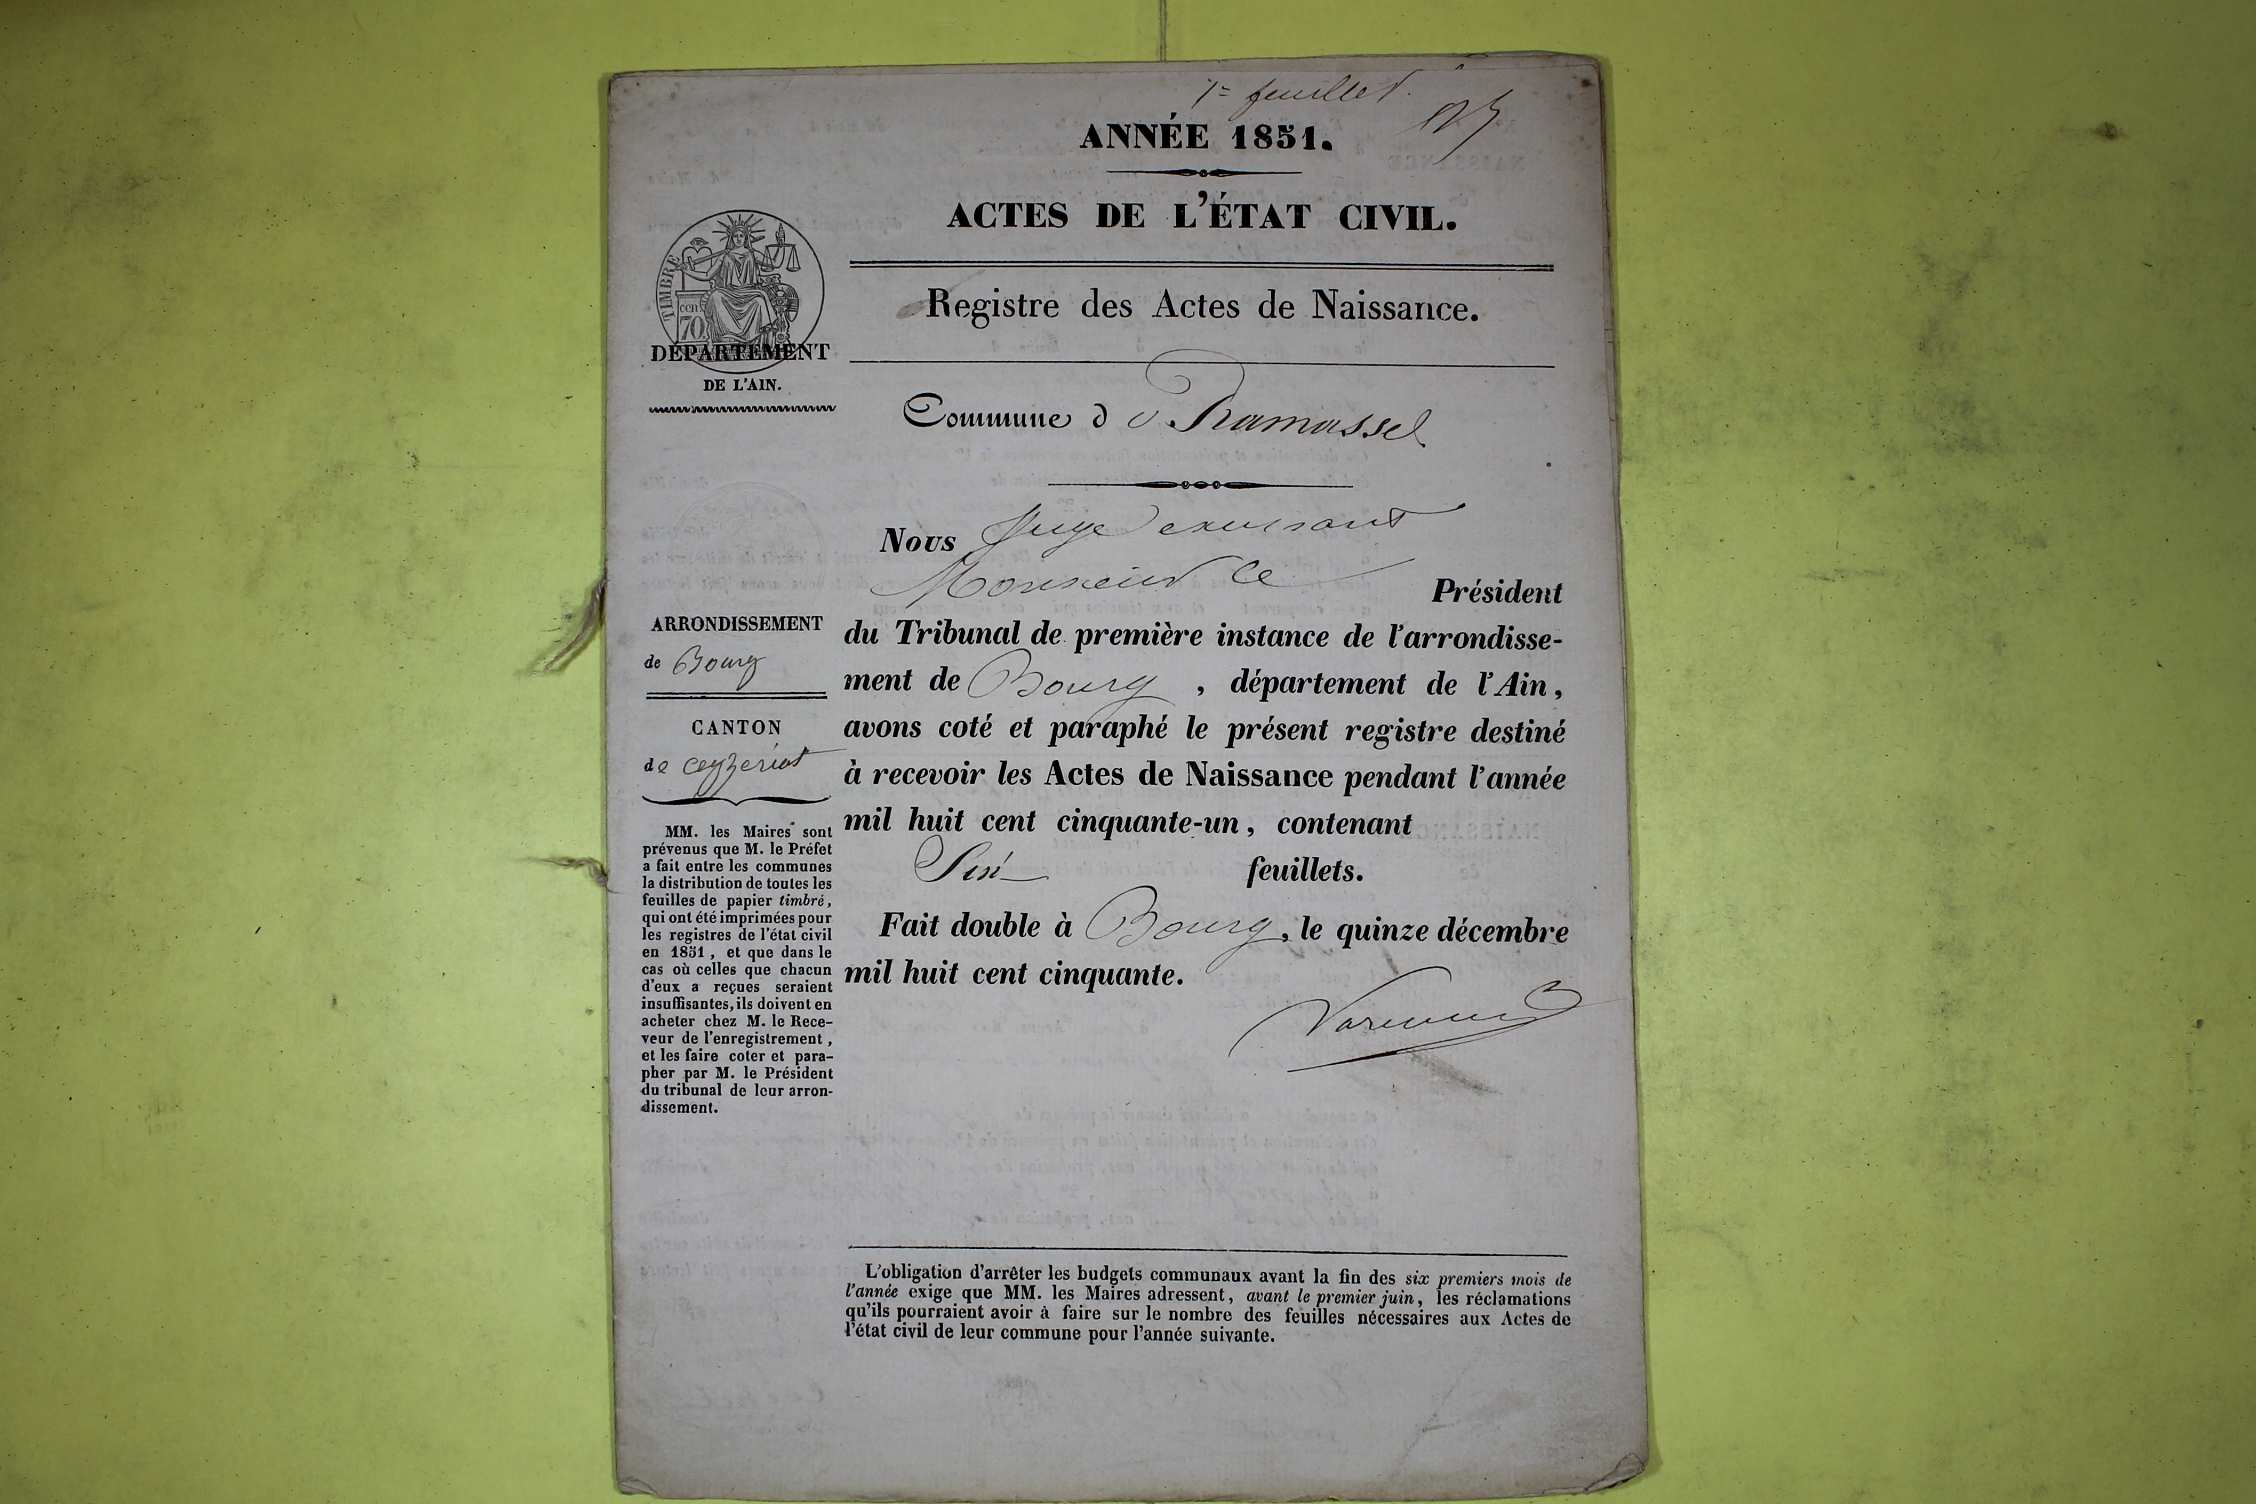 1er feuillet.
ANNÉE 1851.
ACTES DE L'ÉTAT CIVIL.
Registre des Actes de Naissance.
TIMBRE
cen
70
DÉPARTEMENT
DE L'AIN.
Commune de Ramasse
Nous Juge
Monsieur le Président
du Tribunal de première instance de l'arrondisse-
ment de Bourg, département de l'Ain,
avons coté et paraphé le présent registre destiné
à recevoir les Actes de Naissance pendant l'année
mil huit cent cinquante-un, contenant
Six feuillets.
Fait double à Bourg, le quinze décembre
mil huit cent cinquante.
ARRONDISSEMENT
de Bourg
CANTON
de Ceyzériat
MM. les Maires sont
prévenus que M. le Préfet
a fait entre les communes
la distribution de toutes les
feuilles de papier timbré,
qui ont été imprimées pour
les registres de l'état civil
en 1851, et que dans le
cas où celles que chacun
d'eux a reçues seraient
insuffisantes, ils doivent en
acheter chez M. le Rece-
veur de l'enregistrement,
et les faire coter et para-
pher par M. le Président
du tribunal de leur arron-
dissement.
L'obligation d'arrêter les budgets communaux avant la fin des six premiers mois de
l'année exige que MM. les Maires adressent, avant le premier juin, les réclamations
qu'ils pourraient avoir à faire sur le nombre des feuilles nécessaires aux Actes de
l'état civil de leur commune pour l'année suivante.